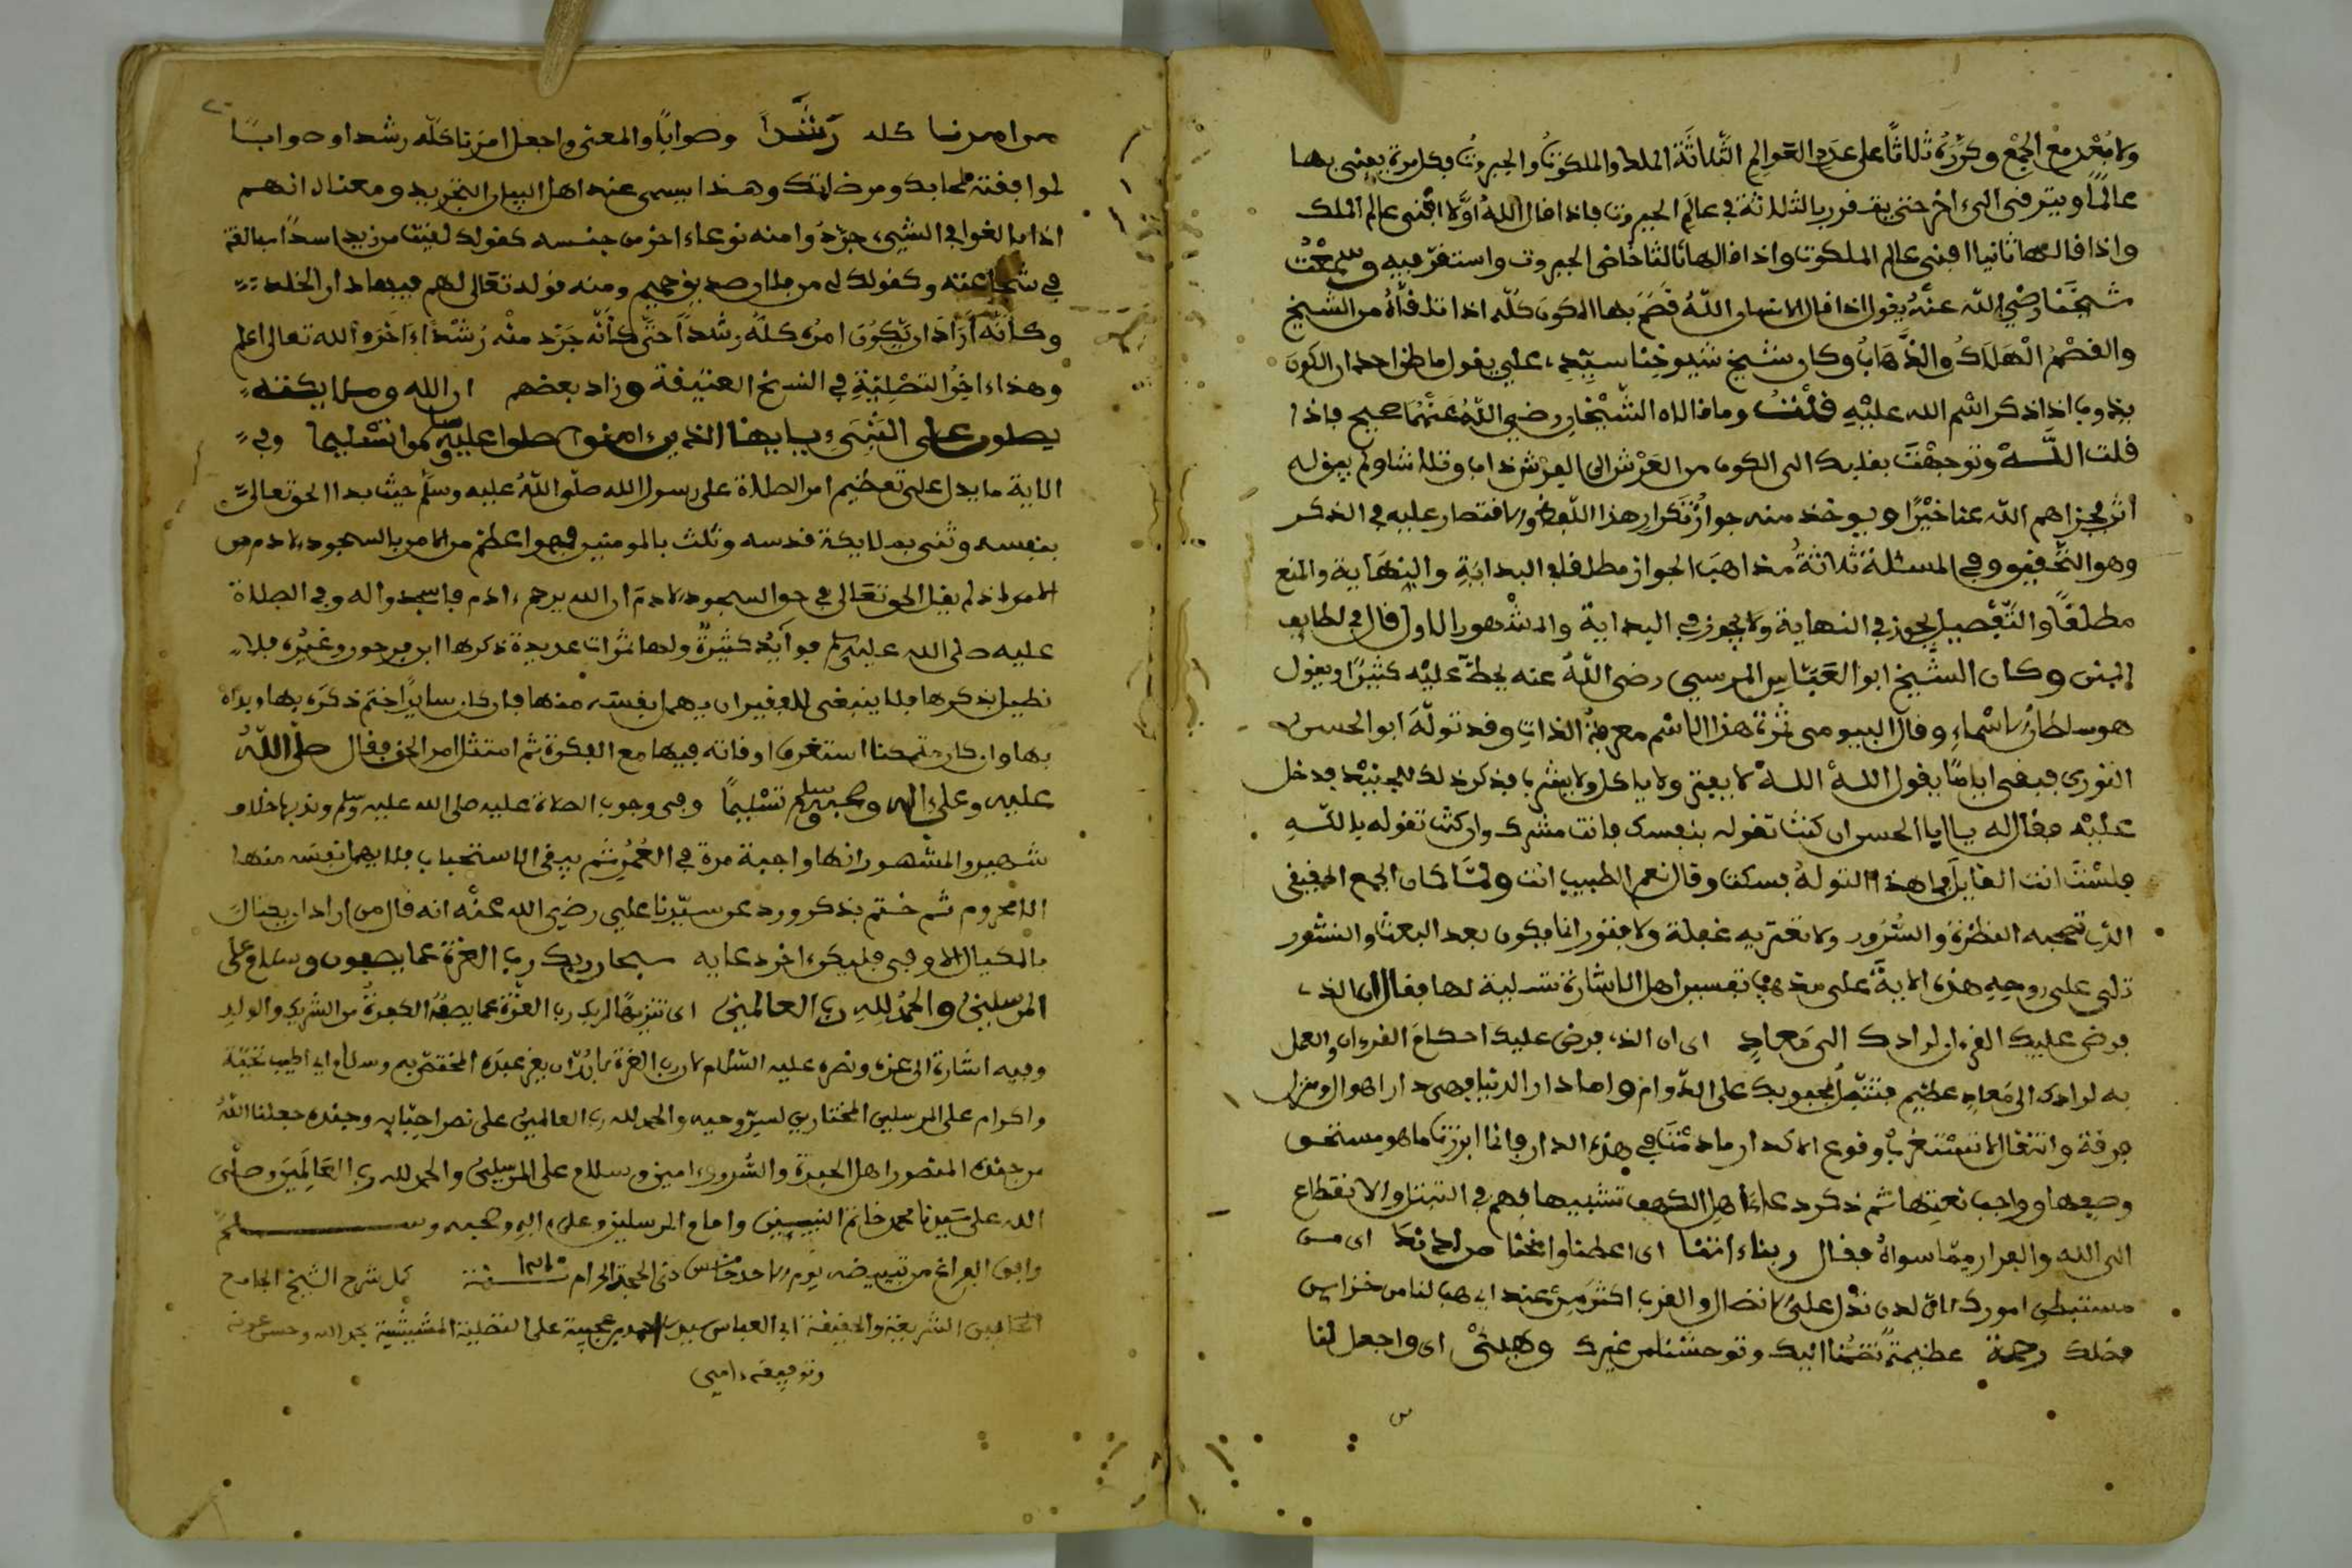 ولا بُعْد مع الجمْعِ وكرَّرهُ ثلاثًا على عدد العوالِمِ الثّلاثَة الملك والملكوتُ والجبروتُ فكل مرة يفنى بها
عالمًا ويترقى الى اخر حتى يقـ فوريا لثلاثة في عالَم الجبروت فاذا قال اللهُ اوَّلا افنى عالم الملك
واذا قالها ثانيا افنى عالم الملكوت واذا قالها ثالثا خاض الجبروت واستقرّ فيه وسمعْتُ
شيخَنا رضي الله عنْهُ يقول اذا قال الانسان اللهُ قصَمَ بها الكون كُلّه اذا تلقّاهُ من الشيخ
والقصْمُ الْهَلاكُ والذّهَابُ وكان شيخ شيوخِنا سيّدِي علي يقول ما ظن احد ان الكونَ
يذوب اذا ذكر اسْم الله عليْهِ قلْتُ وما قالاه الشّيْخانِ رضي اللهُ عَنْهُمَا صحيح فاذا
قلت اللّــهْ وتوجهْتَ بقلبك الى الكون من العَرْش الى الفرْش ذاب وتلاشا ولم يبق له
أثر فجزاهم الله عنا خَيْرًا ويوخذ منه جوازُ تكرار هذا اللّفظ والاقتصار عليه في الذكر
وهو التّحقيق وفي المسئلة ثلاثةُ مذاهبَ الجواز مطلقا في البدايَةِ والنهَاية والمنع
مطلقًا والتّفْصيل يجوز في النهاية ولا يجوز في البداية والمشْهور الاول قال في لطايف
المنن وكان الشّيخ ابو العَبّاسِ المرسي رضي اللهُ عنه يحظّ عليْه كثيرًا ويقول
هو سلطان الاسْماءِ وقال البيومى ثمرة هذا الاسْم معرفةُ الذاتِ وقد تولّهَ ابو الحسن
النوري فبقى ايامًا يقول اللهُ اللهْ لا يفتر ولا ياكل ولا يشرب فذكر ذلك للجنيْد فدخل
عليْه فقال له يا ابا الحسن ان كنت تقوله بنفسك فانت مشرك وان كنت تقوله باللّهِ
فلسْتَ انت القايِل فما هذا التولهُ فسكت وقال نعم الطبيب انت ولمّا كان الجمع الحقيقي
الذي تصحبه النظرة والسُّرُور ولا تعتريه غفلة ولا فتور انما يكون بعد البعث والنشور
تلى على روحِهِ هذه الايةَ على مذهب تفسير اهل الاشارة تسلية لها فقال ان الذي
فرض عليك القرءان لرادك الى مَعادٍ اى ان الذى فرض عليك احكامَ القرءان والعمل
به لرادك الى مَعادٍ عظيم فتتّصِل بمحبوبك على الدّوام واما دار الدنيا فهي دار اهوال ومنزل
فرقة وانتقال لا تسْتغربْ وقوع الاكدار ما دمْتَ في هذه الدار فانها انما ابرزت ما هو مستحق
وصفها وواجب نعتِها ثم ذكر دعاءَ اهل الكهف تشبيها بهم في التبتل والانقطاع
الى الله والفرار ممّا سواهُ فقال ربناءاتنا اى اعطنا وامْنحنا من لدنكَ اى من
مستبطن امورك لان لدن تدُل على الاتصال والقرب اكثرَ مِنْ عند اي هب لنا من خزاين
فضلك رحمة عظيمةً تضمُّنا اليك وتوحشنا من غيرك وهيئْ اى واجعل لنا
من امرنا كله رَشَداً وصوابًا والمعنى واجعل امرَنا كلّه رشدا وصوابًا
لموافقته لمحابك ومرضاتك وهذا يسمى عند اهل البيان التجريد ومعناه انهم
اذا بالغوا في الشيء جرّدُوا منه نوعاءاخر من جنسه كقولك لقيت من زيد اسدًا مبالغة
في شجاعته وكقولك لي من فلان صديق حميم ومنه قوله تعَالى لهم فيها دار الخلد
وكأنّه أرادَ ان يّكُونَ امره كلُّهُ رشْداً حتّى كأنّه جَرّد منْه رُشْداءاخَرَ والله تعالى اعلم
وهذاءاخرُ التصْلِيَةِ في النسخ العتيقة وزاد بعضهم ان الله وملايكته
يصلون على النبيء يايها الذينءامنوا صلوا عليه وسلموا تسْليما وفي
الاية ما يدل على تعظيم امر الصلاة على رسول الله صلّى اللهُ عليه وسلّم حيث بدا الحق تعالى
بنفسه وثنى بملايكة قدسه وثلث بالمومنين فهو اعظم من الامر بالسجود لادم من
الله اذ لم يقل الحق تعَالى في حق السجود لادمَ ان الله يرحمءادم فاسجدوا له وفي الصلاة
عليه صلى الله عليه وسلم فوايدُ كثيرةٌ ولها ثمرات عديدة ذكرها ابن فرحون وغيْره فلا
نطيل بذكرها فلا ينبغي للفقير ان يهمل نفسَه منها فان كان سايرًا ختمَ ذكرَه بها وبداهُ
بها وان كان متمكنا استغرق اوقاته فيها مع الفكرة ثم امتثل امر الحق فقال صلّى اللّهُ
عليه وعلىءاله وصحبه وسلم تسْليمًا وفي وجوب الصلاة عليه صلى الله عليه وسلم وندبها خلاف
شهير والمشهور انها واجبة مرة في العُمُرِ ثم يبقى الاستحباب فلا يهمل نفسَه منها
الا محروم ثم ختم بذكر ورد عن سيّدنا علي رضي الله عنْه انه قال من اراد ان يكتالَ
بالمكيال الاوفى فليكنءاخر دعايه سبحان ربك رب العزة عما يصفون وسلام على
المرسلينَ والحمدُ للهِ رب العالمينَ اى تنزيهًا لربك رب العزّة عما يصفُهُ الكفرةُ من الشريك والولدِ
وفيه اشارة الى عزه ونصره عليه السّلام لان رب العزة لابُدّ ان يعِز عبدَه المختصّ به وسلام اي اطيب تحيّة
واكرام على المرسلين المختارين لسِرّ وحيه والحمد لله رب العالمينَ على نصر احبّايه وجنده جعلنا اللهُ
من جنده المنصور اهل الحبرة والسُّرورءامين وسلام على المرسلين والحمد لله رب العَالَمِينَ وصلّى
الله على سَيدنا محمد خاتم النبيين وامام المرسلين وعلىءاله وصحبه وسلم
وافق الفراغ من تبييضه يوم الاحد خامس ذى الحجة الحرام سنة كمل شرح الشيخ الجامع
الشريعة والحقيقة ابي العباس سيدى احمد بن عجيبة على التصلية المشيشية بحمد الله وحسن عونه
وتوفيقهءامين